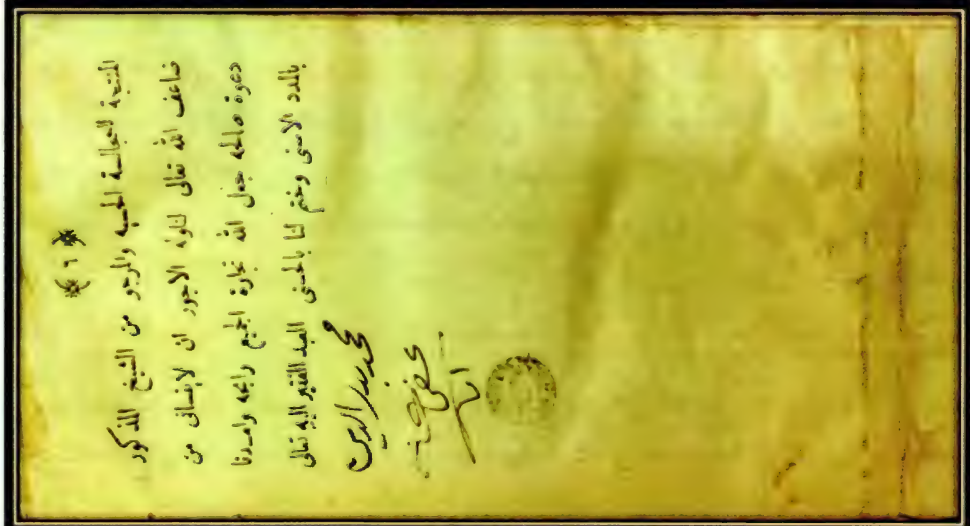 ﴿ ٦ ﴾
المنتجة للمجالسة الحسيه والمرجو من الشيخ المذكور
ضاعف الله تعالى لناوله الاجور ان لاينسانى من
دعوة صالحة جعل الله تجارة الجميع رابحه وامدنا
بالمدد الاسنى وختم لنا بالحسنى العبد الفقير اليه تعالى
محمد بدر الدين
عفى عنه